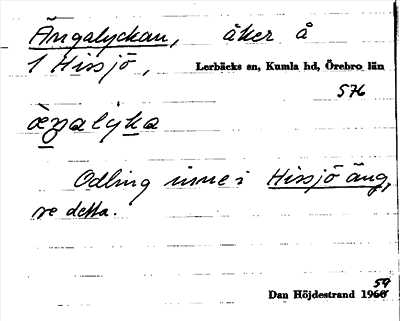 Ängalyckan, åker å
1 Hissjö,
Lerbäcks sn, Kumla hd, Örebro län
576
Odling inne i Hissjö äng,
se detta.
59
Dan Höjdestrand 1960